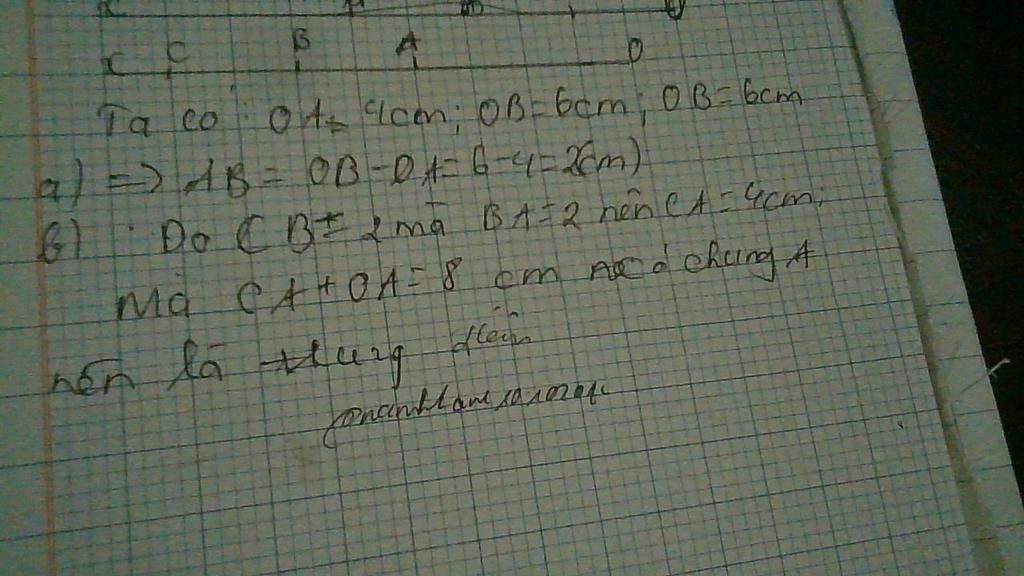 x C B A O
Ta có: OA = 4cm; OB = 6cm; OB = 6cm
a) => AB = OB - OA = 6 - 4 = 2(cm)
b) : Do CB = 2 mà BA = 2 nên CA = 4cm;
Mà CA + OA = 8 cm chung A
nên là